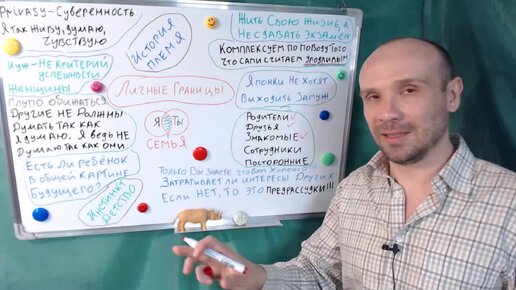 Privasy-Суверенность
Я так живу, думаю,
чувствую
Муж-не критерий
успешности
Женщины
Глупо обижаться
Другие не должны
думать так как
я думаю. Я ведь не
думаю так как они
Есть ли ребёнок
в общей картине
будущего?
История
племя
Инстинкт
Детство
Личные границы
Я
Ты
Семья
Жить свою жизнь, а
не сдавать экзамен
Комплексуем по поводу того
что сами считаем уродливым
Японки не хотят
выходить замуж
Родители
Друзья
Знакомые
Сотрудники
Посторонние
Только вы знаете что вам хорошо!!!
Затрагивает ли интересы других
Если нет, то это предрассудки!!!